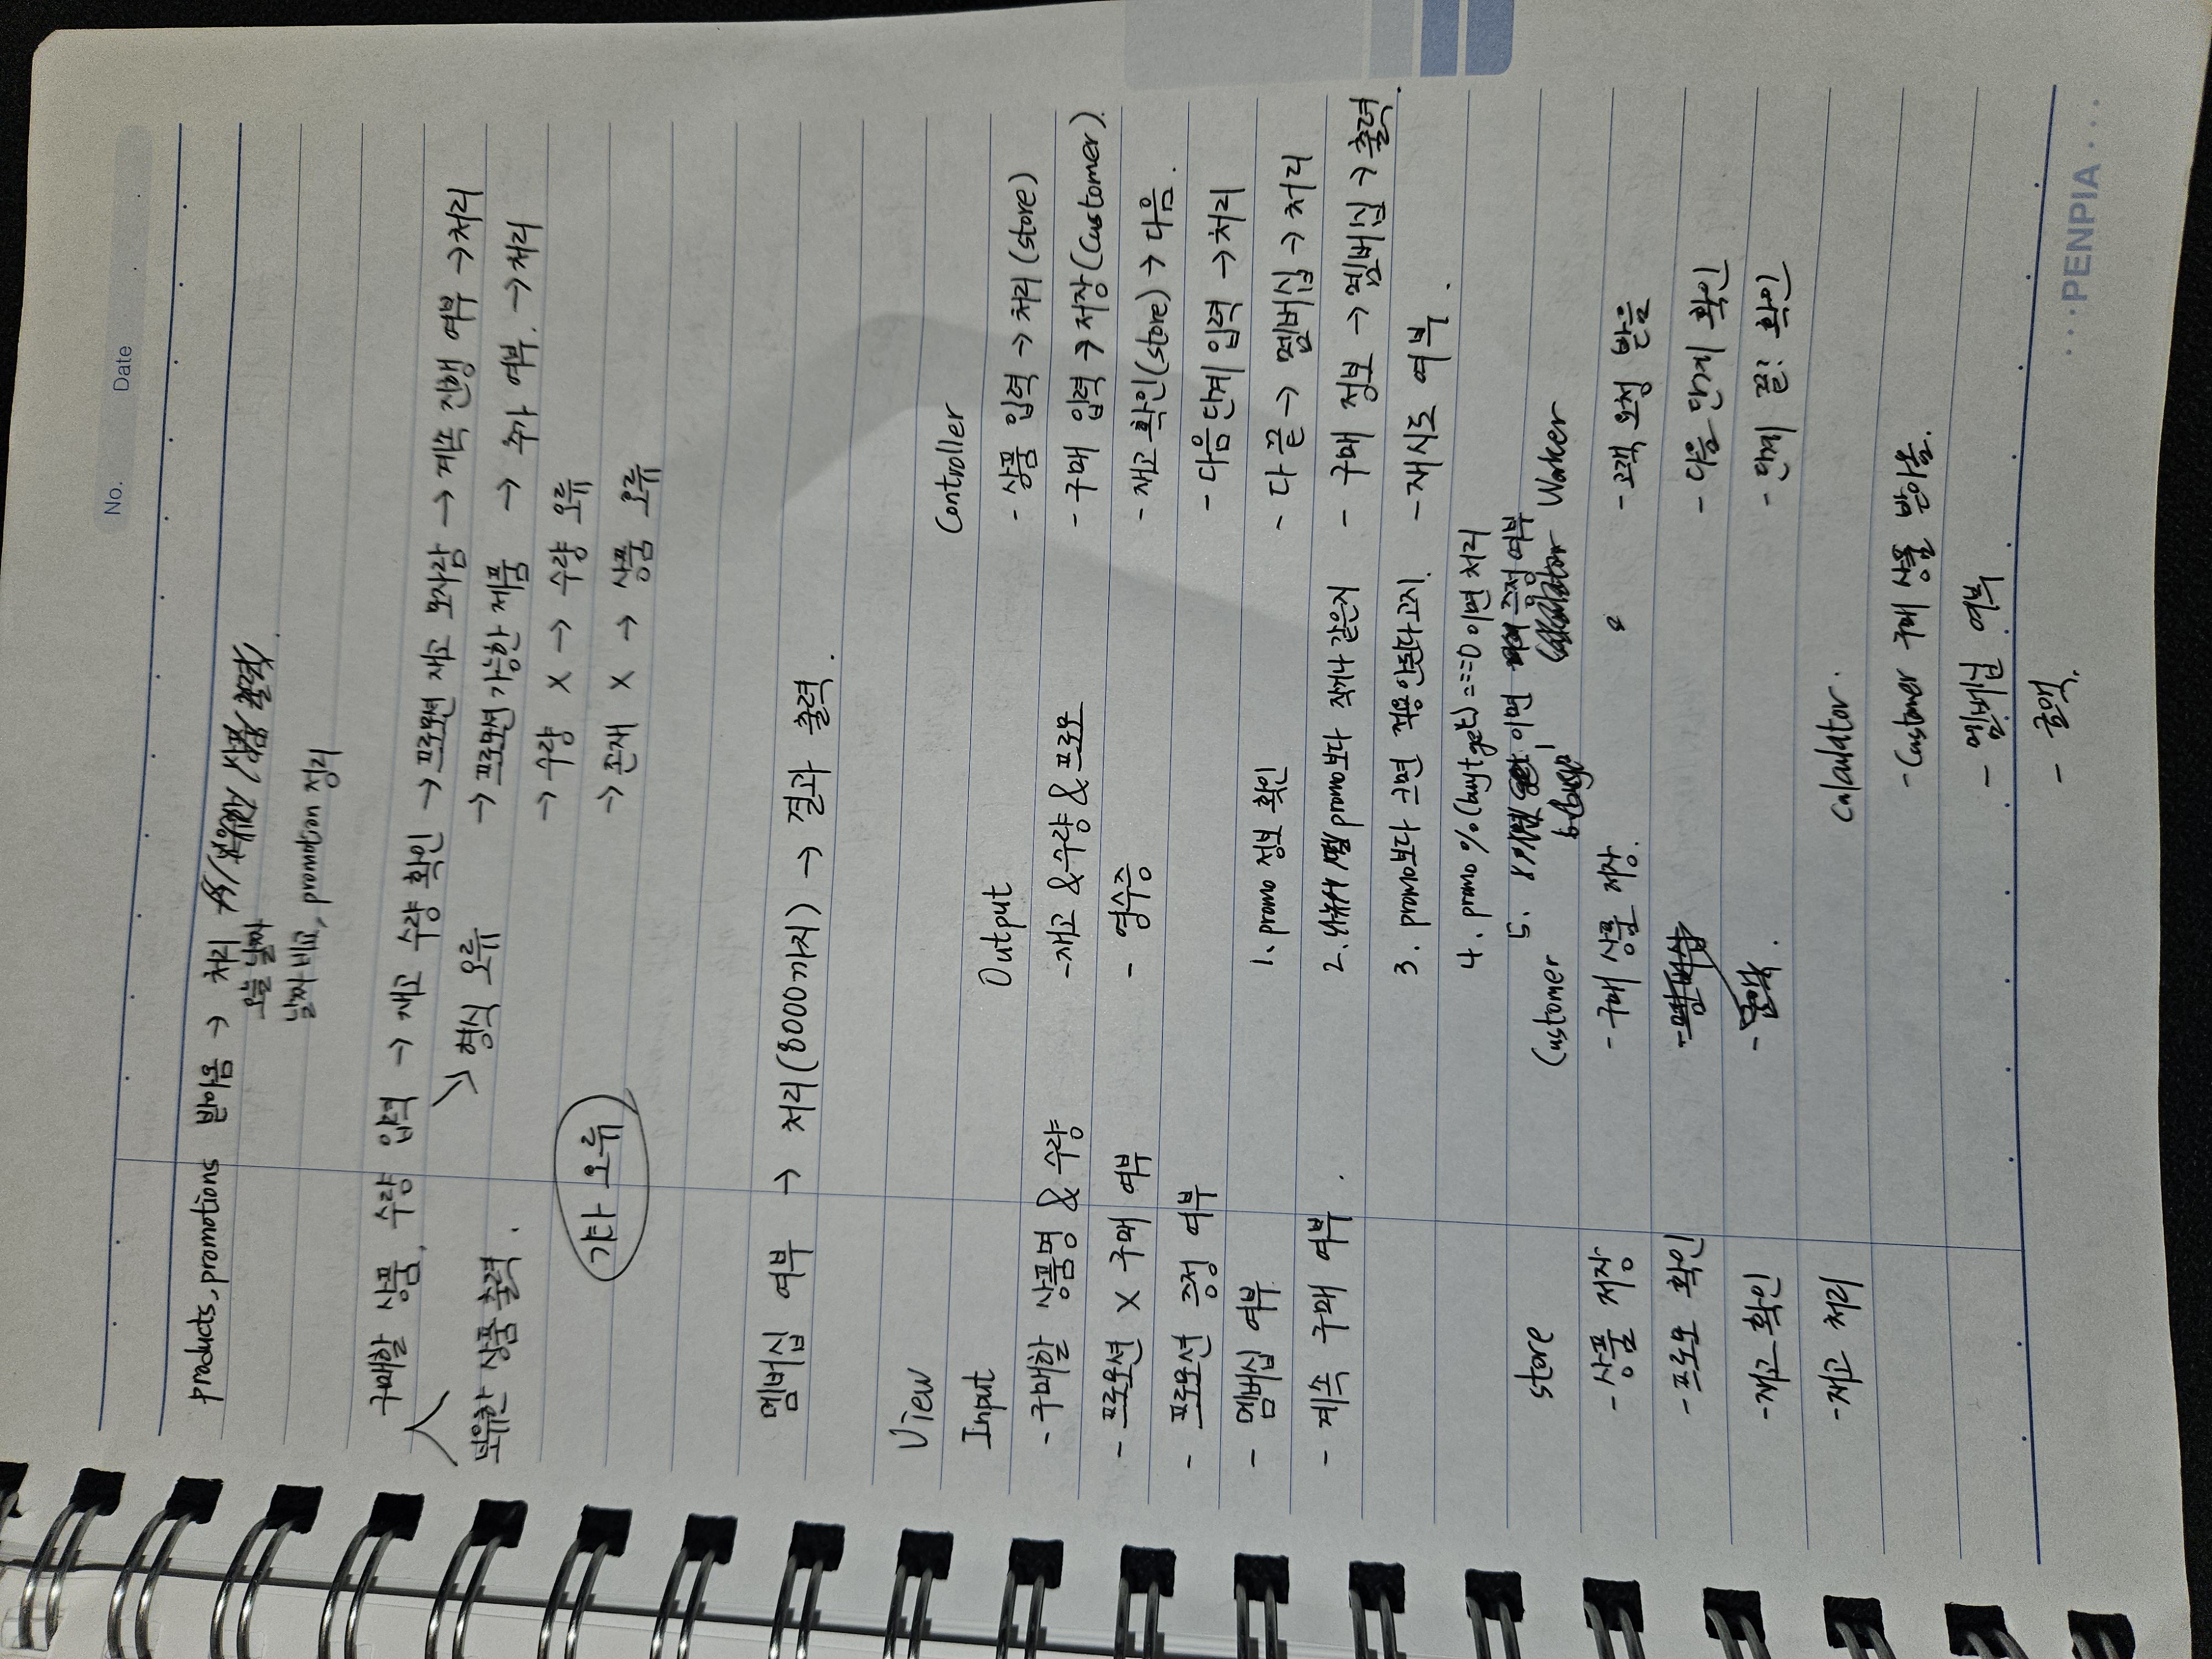 No.
Date
products, promotions 받아옴 → 처리
오늘 날짜
날짜 비교, promotion 정리
구매할 상품, 수량 입력 → 재고 수량 확인 → 프로모션 재고 모자람 → 계속 진행 여부 → 처리
↘ 형식 오류 → 프로모션 가능한 제품 → 추가 여부. → 처리
보유한 상품 출력.
→ 수량 X → 수량 오류
기타 오류
→ 존재 X → 상품 오류
멤버십 여부 → 처리(8000까지) → 결과 출력.
View
Controller
Input
Output
- 상품 입력 → 처리(store)
- 구매할 상품명 & 수량
- 재고 & 수량 & 프로모
- 구매 입력 → 저장(Customer)
- 프로모션 X 구매 여부
- 영수증
- 재고 확인(store) → 다음.
- 프로모션 증정 여부
- 다음 단계 입력 → 처리
- 멤버십 여부
1. promo 정보 확인
- 다 끝 → 멤버십 → 처리
- 계속 구매 여부.
2. promo보다 작거나 같은지
- 구매 정보 → 멤버십 → 출력.
3. promo보다 크면 적용안된다고지.
- 재시도 여부.
4. promo % (buy+get) === 0 이면 처리
5. 이면 증정 여부
store
Customer
Worker
- 상품 저장
- 구매 상품 저장.
- 고객 요청 받음
- 프로모 확인
- 멤버십
- 다음 단계 확인
- 재고 확인
- 금액.
- 단계 끝? 확인
- 재고 처리
Calculator.
- Customer 구매 상품 받아옴.
- 멤버십 여부
- 금액.
PENPIA